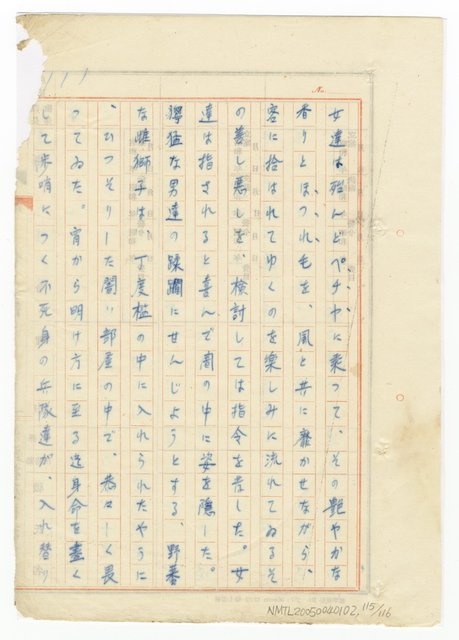 No.
女達は殆んどペチヤに乗つて、その艶やかな
香りとほつれ毛を、風と共に靡かせながら、
客に拾はれてゆくのを楽しみに流れてゐるそ
の善し悪しを、検討しては指令を発した。女
達は指されると喜んで闇の中に姿を隠した。
獰猛な男達の蹂躙にせんじようとする、野蕃
な雌獅子は、丁度檻の中に入れられたやうに
、ひつそりした闇い部屋の中で、荒はしく畏
つてゐた。宵から明け方に至る迄身命を盡く
して歩哨につく不死身の兵隊達が、入れ替り
NMTL20050040102, 115/116